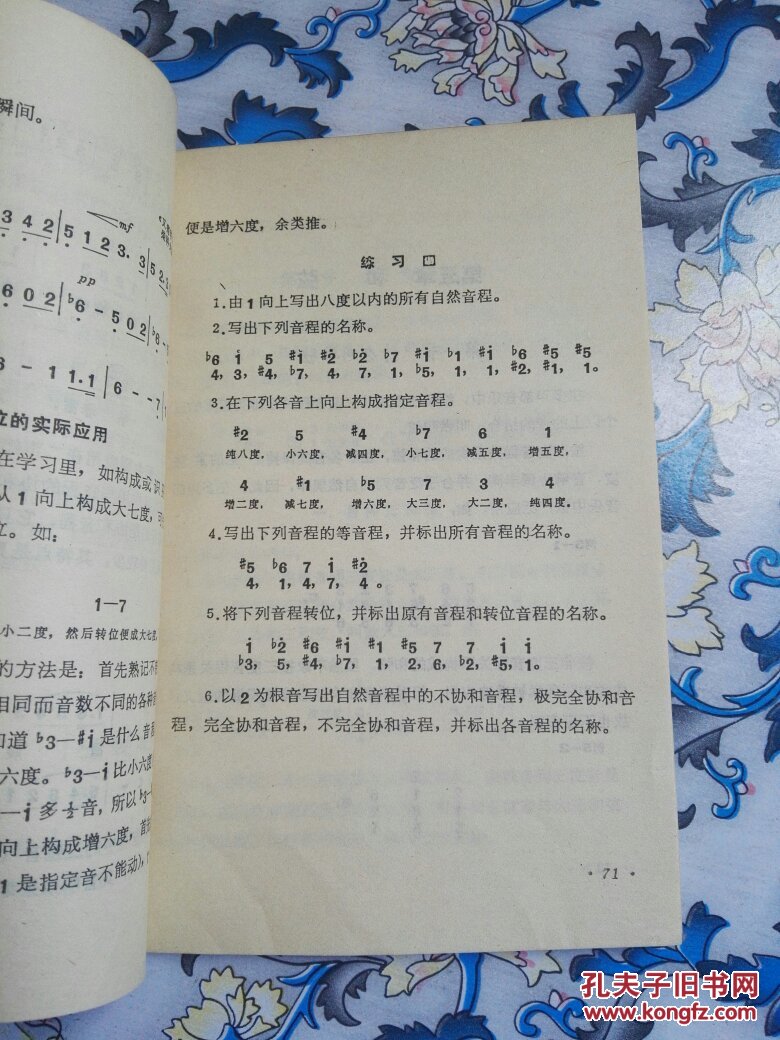 瞬间。
3 4 2 | 5 1 2 3. 3 | 5 2.
mf
pp
6 0 2 | ♭6 - 5 0 2 | ♭6 -
6 - 1 1.1 | 6 - - 7
立的实际应用
在学习里，如构成或
从1向上构成大七度，
立。如：
1—7
小二度，然后转位便成大七度
的方法是：首先熟记不
相同而音数不同的各种
知道 ♭3—♯i是什么音
六度。♭3—i比小六度
—i多½音，所以♭3—
向上构成增六度，首
1是指定音不能动），
便是增六度，余类推。
练 习 四
1.由1向上写出八度以内的所有自然音程。
2.写出下列音程的名称。
♭6 i 5 ♯i ♯2̇ ♭2̇ ♭7 ♯i ♭1 ♯i ♭6 ♯5 ♯5
4, 3, ♯4, ♭7, 4, 7, 1, ♭5, 1, 1, ♯2, ♯1, 1。
3.在下列各音上向上构成指定音程。
♯2 5 ♯4 ♭7 6 1
纯八度， 小六度， 减四度， 小七度， 减五度， 增五度，
4 ♯1 ♭5 7 3 4
增二度， 减七度， 增六度， 大三度， 大二度， 纯四度。
4.写出下列音程的等音程，并标出所有音程的名称。
♯5 ♭6 7 i ♯2̇
4, 1, 4, 7, 4 。
5.将下列音程转位，并标出原有音程和转位音程的名称。
i ♭2̇ ♯6 ♯i ♯1 ♯5 7 7 i i
♭3, 5, ♯4, ♭7, 1, 2, 6, ♭2, ♯5, 1。
6.以2为根音写出自然音程中的不协和音程，极完全协和音
程，完全协和音程，不完全协和音程，并标出各音程的名称。
· 71 ·
孔夫子旧书网
www.kongfz.com